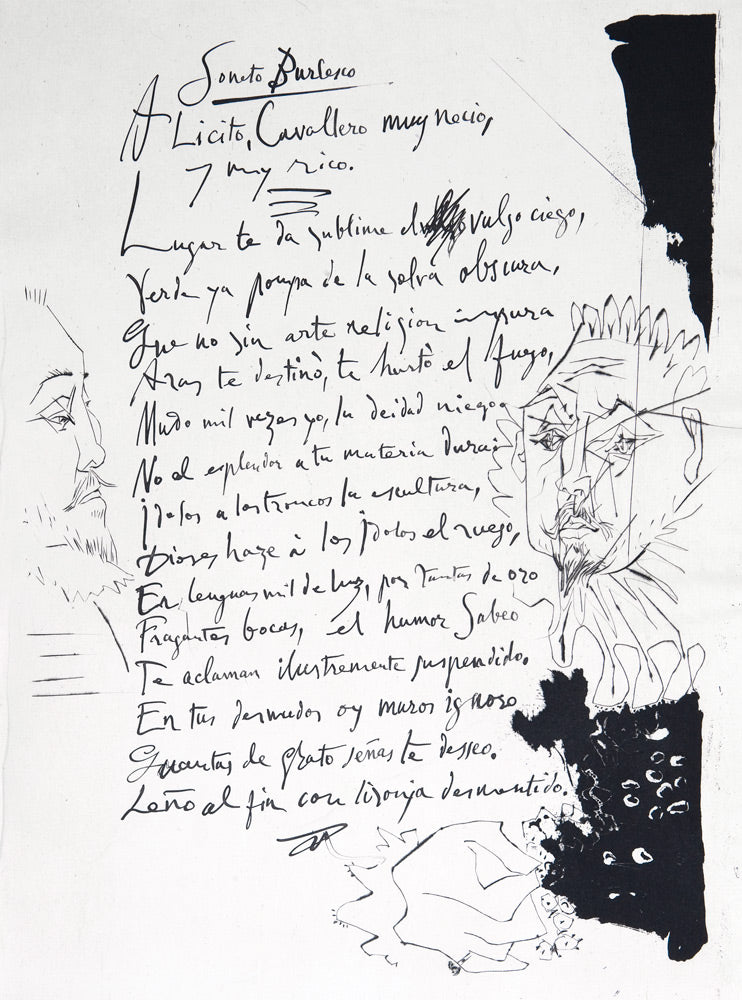 Soneto Burlesco
A Licito, Cavallero muy necio,
y muy rico.
Lugar te da sublime el vulgo ciego,
Verde ya pompa de la selva obscura,
Que no sin arte religion impura
Aras te destinò, te hurtò el fuego,
Mudo mil vezes yo, la deidad niego,
No el esplendor a tu materia dura:
jdolos a los troncos la escultura,
Dioses haze à los jdolos el ruego,
En lenguas mil de luz, por tantas de oro
Fragantes bocas, el humor Sabeo
Te aclaman ilustremente suspendido.
En tus desnudos oy muros ignoro
Quantas de grato señas te desseo.
Leño al fin con lisonja desmentido.